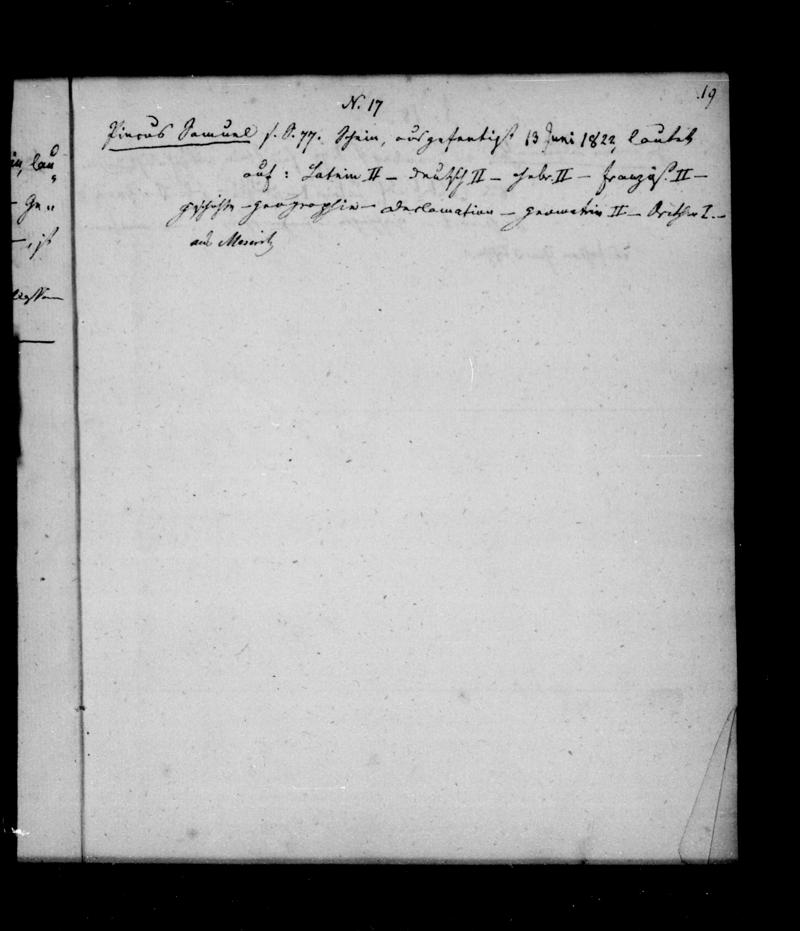 19
N. 17
Pincus Samuel s. S. 77. Schein, ausgefertigt 13 Juni 1822 lautet
auf: Latein II – deutsch II – hebr. II – französ. II –
geschichte – geographie – declamation – geometrie II – Arithm I. –
aus Meseritz
in, lau
Ge
, ist